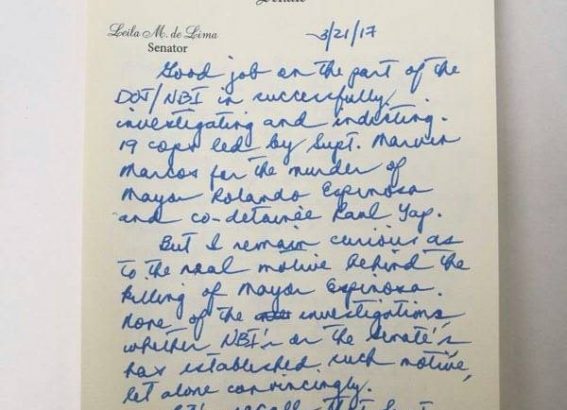 Senate
Leila M. de Lima
Senator
3/21/17
Good job on the part of the
DOJ/NBI in successfully
investigating and indicting.
19 cops led by Supt. Marvin
Marcos for the murder of
Mayor Rolando Espinosa
and co-detainee Raul Yap.
But I remain curious as
to the real motive behind the
killing of Mayor Espinosa.
None of the investigations
whether NBI's or the Senate's
has established such motive,
let alone convincingly.
recall that